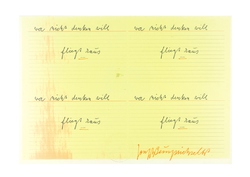 wer nicht denken will    wer nicht denken will
fliegt raus    fliegt raus
wer nicht denken will    wer nicht denken will
fliegt raus    fliegt raus